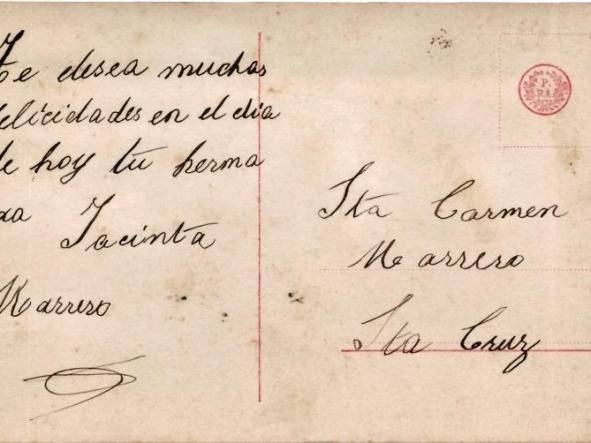 Te desea muchas
felicidades en el dia
de hoy tu herma
na Jacinta
Marrero
Sta Carmen
Marrero
Sta Cruz